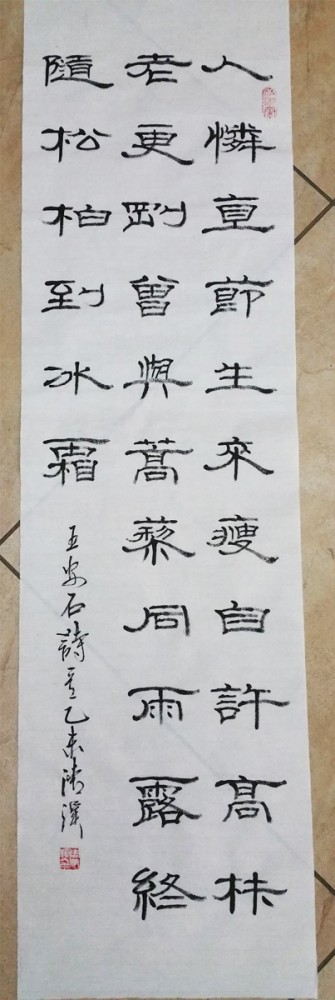 人憐直節生來瘦自許高材
老更剛曾與蒿藜同雨露終
隨松柏到冰霜
王安石詩意乙未清溪